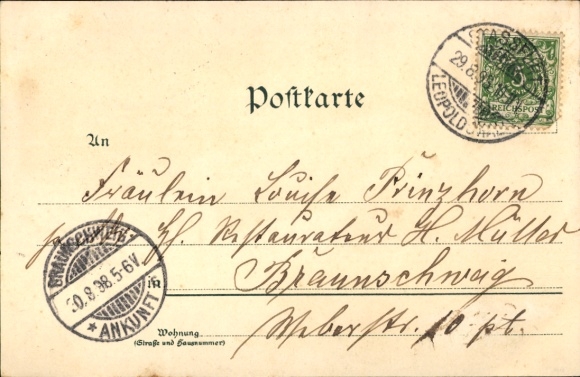 STASSFURT
29.8.98
LEOPOLDSHALL
5
REICHSPOST
Postkarte
An
Fräulein Louise Prinzhorn
Restaurateur H. Müller
BRAUNSCHWEIG
30.8.98.5-6V.
* ANKUNFT *
Braunschweig
in
Weberstr. 10 pt.
Wohnung
(Straße und Hausnummer)